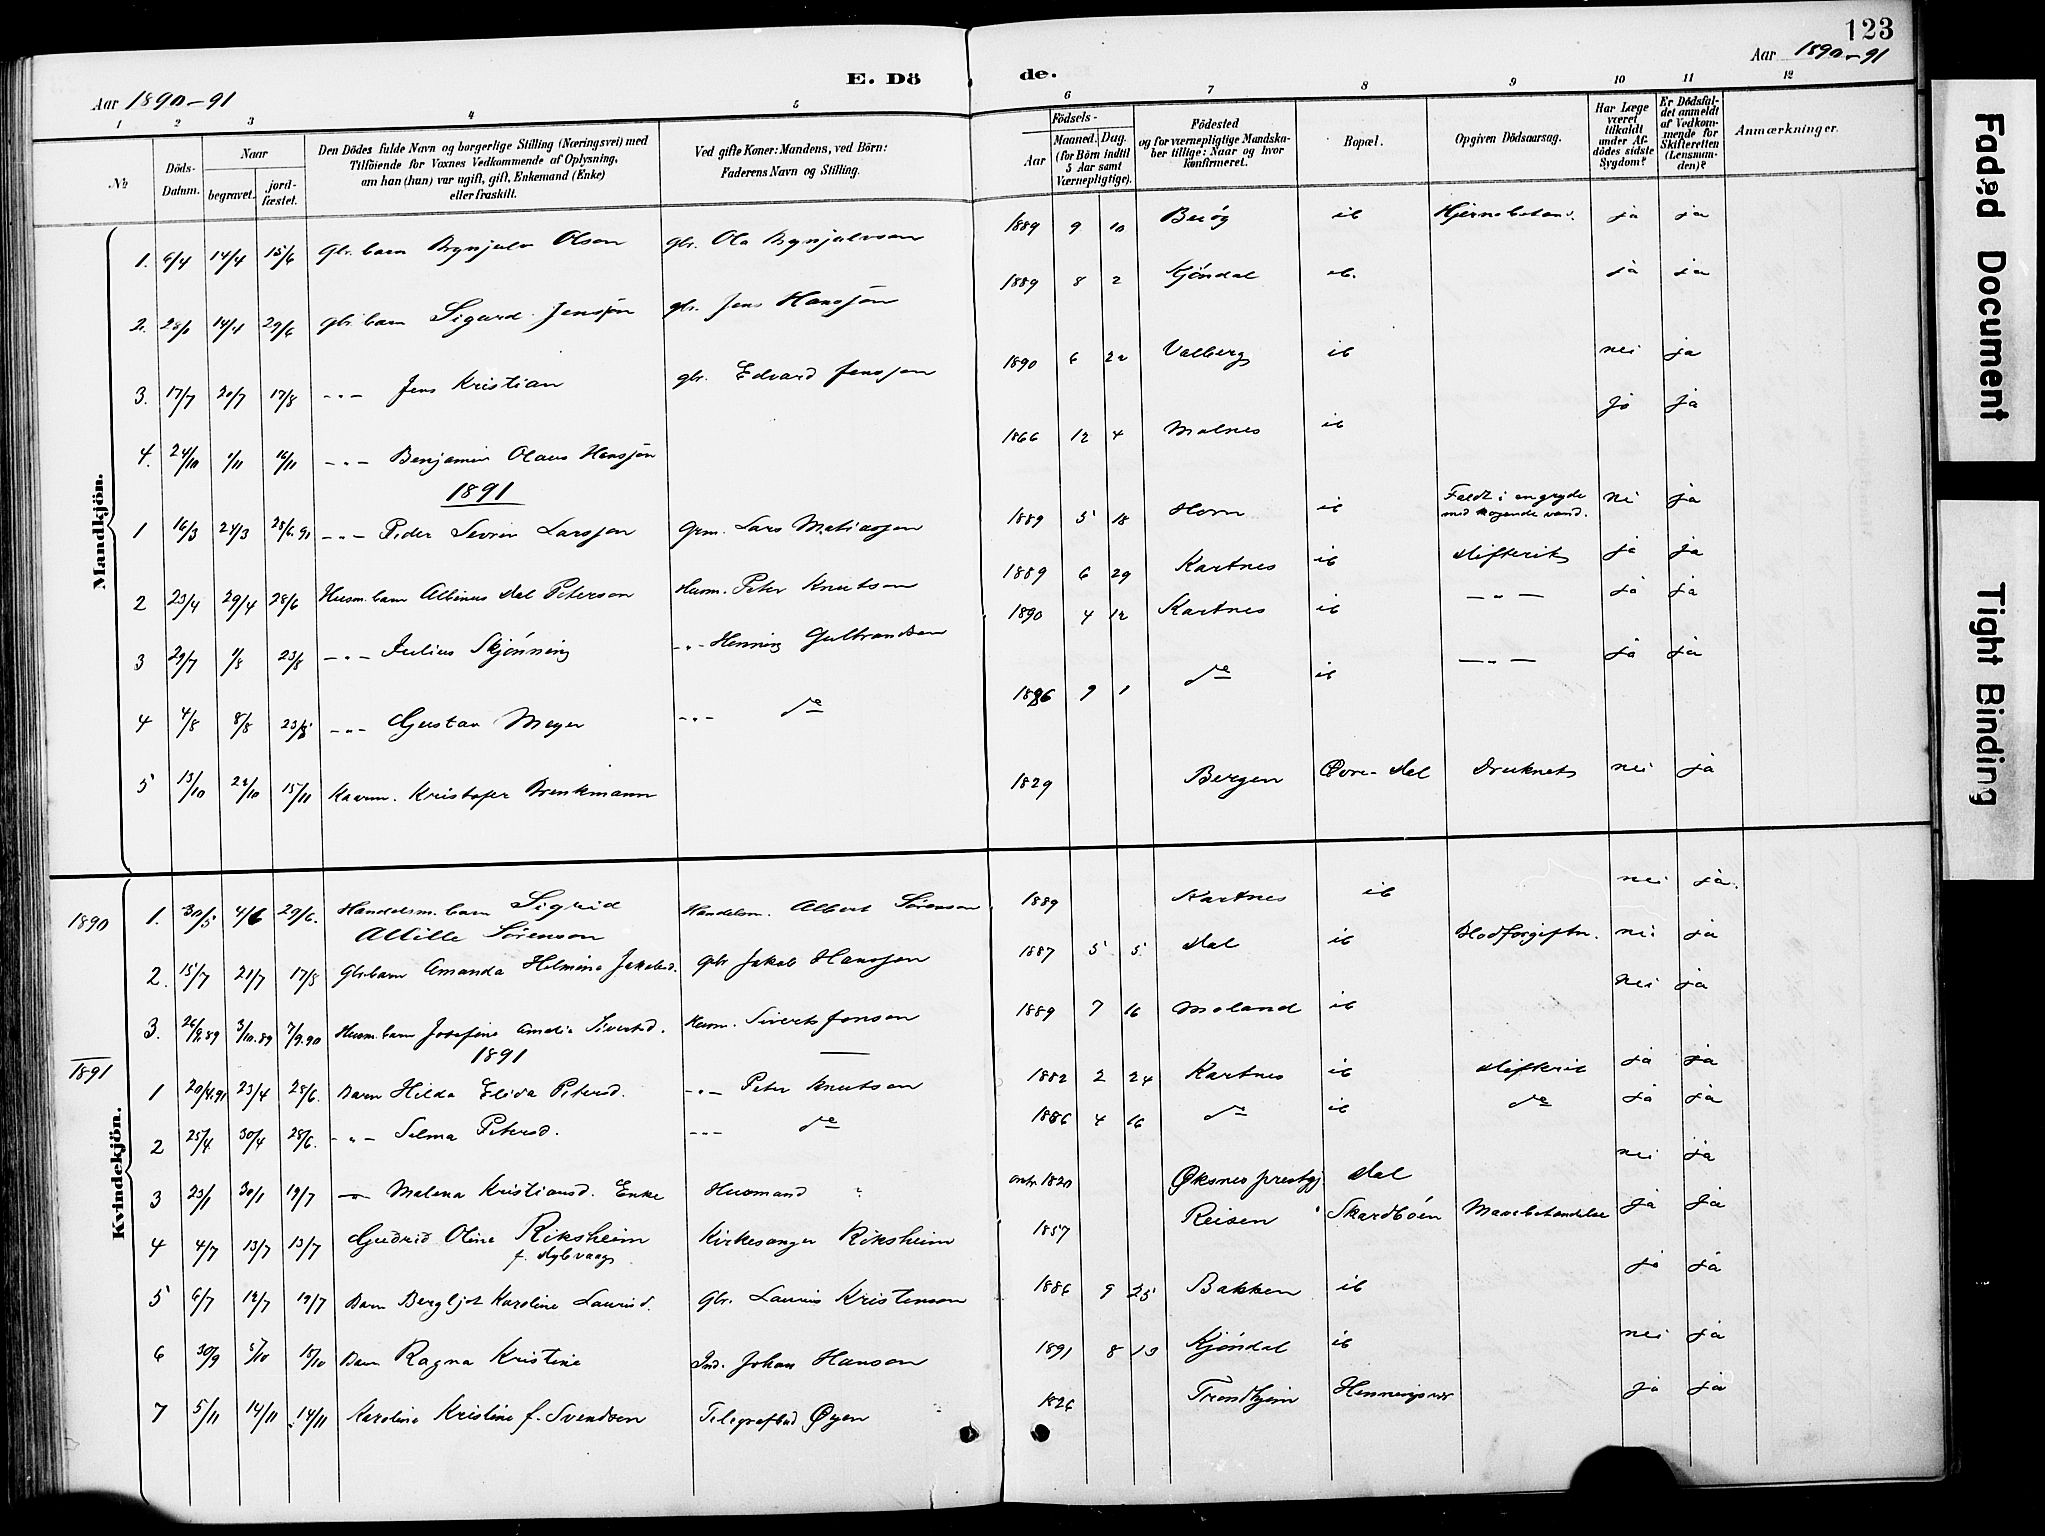 123
E. Dö de.
Aar 1890-91
Aar 1890-91
1 2 3 4 5 6 7 8 9 10 11 12
No
Döds-Datum.
Naar
begravet.
jord-fæstet.
Den Dödes fulde Navn og borgerlige Stilling (Næringsvei) med
Tilföiende for Voxnes Vedkommende af Oplysning,
om han (hun) var ugift, gift, Enkemand (Enke)
eller fraskilt.
Ved gifte Koner: Mandens, ved Börn:
Faderens Navn og Stilling.
Födsels-
Aar
Maaned. Dag.
(for Börn indtil
5 Aar samt
Værnepligtige).
Födested
og for værnepligtige Mandska-
ber tillige: Naar og hvor
konfirmeret.
Bopæl.
Opgiven Dödsaarsag.
Har Læge
været
tilkaldt
under Af-
dödes sidste
Sygdom?
Er Dödsfal-
det anmeldt
af Vedkom-
mende for
Skifteretten
(Lensman-
den)?
Anmærkninger.
Mandkjön.
1. 6/4 14/4 15/6 Gbr. barn Brynjulv Olson gbr. Ola Brynjulvson 1889 9 10 ib ja ja
2. 14/4 29/6 gbr. barn Sigurd Jensson gbr. Jens Hansson 1889 8 2 Kjöndal ib. ja ja
3. 17/7 20/7 17/8 -"- Jens Kristian gbr. Edvard Jensson 1890 6 22 Valberg ib nei ja
4. 24/10 1/11 16/11 -"- Benjamin Olaus Hansson 1866 12 4 Molnes ib ja ja
1891
1 16/3 24/3 28/6.91 -"- Peder Sevrin Larsson Grm. Lars Matiasson 1889 5 18 Horn ib Faldt i en gryde med kogende vand. nei ja
2 23/4 29/4 28/6 Husm. barn Albinus Dal Peterson Husm. Peter Knutson 1889 6 29 Kartnes ib difterit ja ja
3 29/7 1/8 23/8 -"- Julius Skjönning -"- Henning Gulbrandsen 1890 4 12 Kartnes ib -"- ja ja
4 4/8 8/8 23/8 -"- Gustav Meyer -"- do 1886 9 1 do ib -"- ja ja
5 13/10 22/10 15/11 Kristofer Brenkmann 1829 Bergen Øvre-Dal Druknet nei ja
Kvindekjön.
1890
1. 30/5 4/6 29/6. Handelsm. barn Sigrid Albille Sörenson Handelsm. Albert Sörenson 1889 Kartnes ib nei ja.
2. 15/7 21/7 17/8 Gbr. barn Amanda Helmine Jakobsd. Gbr Jakob Hansson 1887 5 5 Dal ib Blodforgiftn. nei ja
3. 26/9.89 3/10.89 7/9.90 Husm. barn Josefine Amalia Sivertsd. Husm. Sivert Jonson 1889 7 16 Moland ib nei ja
1891
1891
1 20/4.91 23/4 28/6. Barn Hilda Elida Petersd. -"- Peter Knutson 1882 2 24 Kartnes ib difterit ja ja
2 25/4 30/4 28/6. -"- Selma Petersd. -"- do 1886 4 16 do ib do ja ja
3 23/1 30/1 19/7 Malena Kristiansd. Enke Husmand 1820 Øksnes prestgj Dal nei ja
4 4/7 13/7 13/7 Gudrid Oline Riksheim f. Dybvaag Kirkesanger Riksheim 1857 Reisen Skardböen ja ja
5 6/7 12/7 19/7 Barn Bergljot Karoline Laurisd. Gbr. Laurits Kristenson 1886 9 25 Bakken ib ja ja
6 30/9 5/10 18/10 Barn Ragna Kristine Ind. Johan Hanson 1891 8 13 Kjöndal ib nei ja
7 5/11 14/11 14/11 Karoline Kristine f. Svendsen Telegrafbud Øyen 1826 Trondhjem Henningsvær ja ja
Fadgd Document
Tight Binding